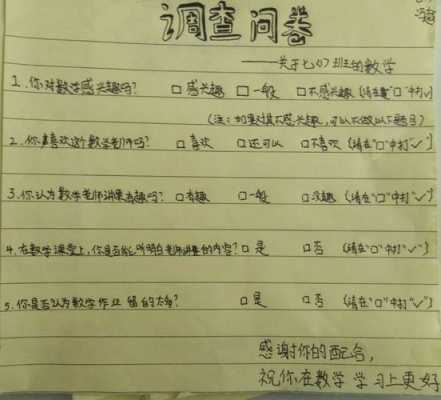 调查问卷
——关于七(7)班的数学
1.你对数学感兴趣吗? □感兴趣 □一般 □不感兴趣(请在"□"中打√)
(注:如果填不感兴趣,可以不做以下题目)
2.你喜欢这个数学老师吗? □喜欢 □还可以 □不喜欢(请在"□"中打"√")
3.你认为数学老师讲课有趣吗? □有趣 □一般 □没趣(请在"□"中打"√")
4.在数学课堂上,你是否能听明白老师讲的内容? □是 □否 (请在"□"中打"√")
5.你是否认为数学作业留的太多? □是 □否 (请在"□"中打"√")
感谢你的配合,
祝你在数学学习上更好